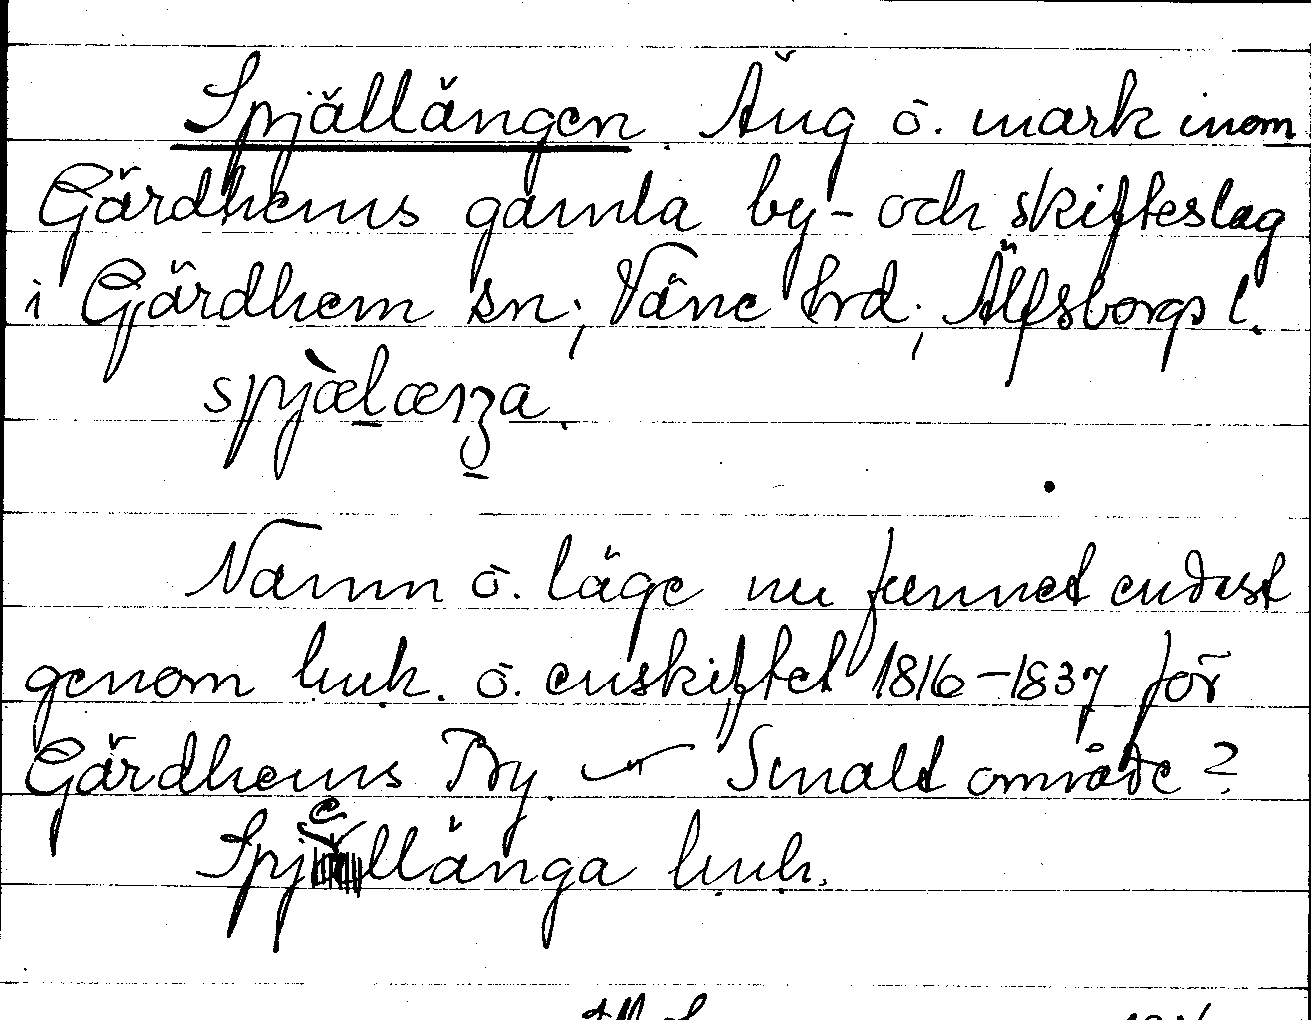 Spjällängen. Äng o. mark inom
Gärdhems gamla by- och skifteslag
i Gärdhem sn; Väne hrd; Älfsborgs l.
Namn o. läge nu funnet endast
genom huh. o. enskiftet 1816-1837 för
Gärdhems By. Smalt område?
Spjellänga huh.